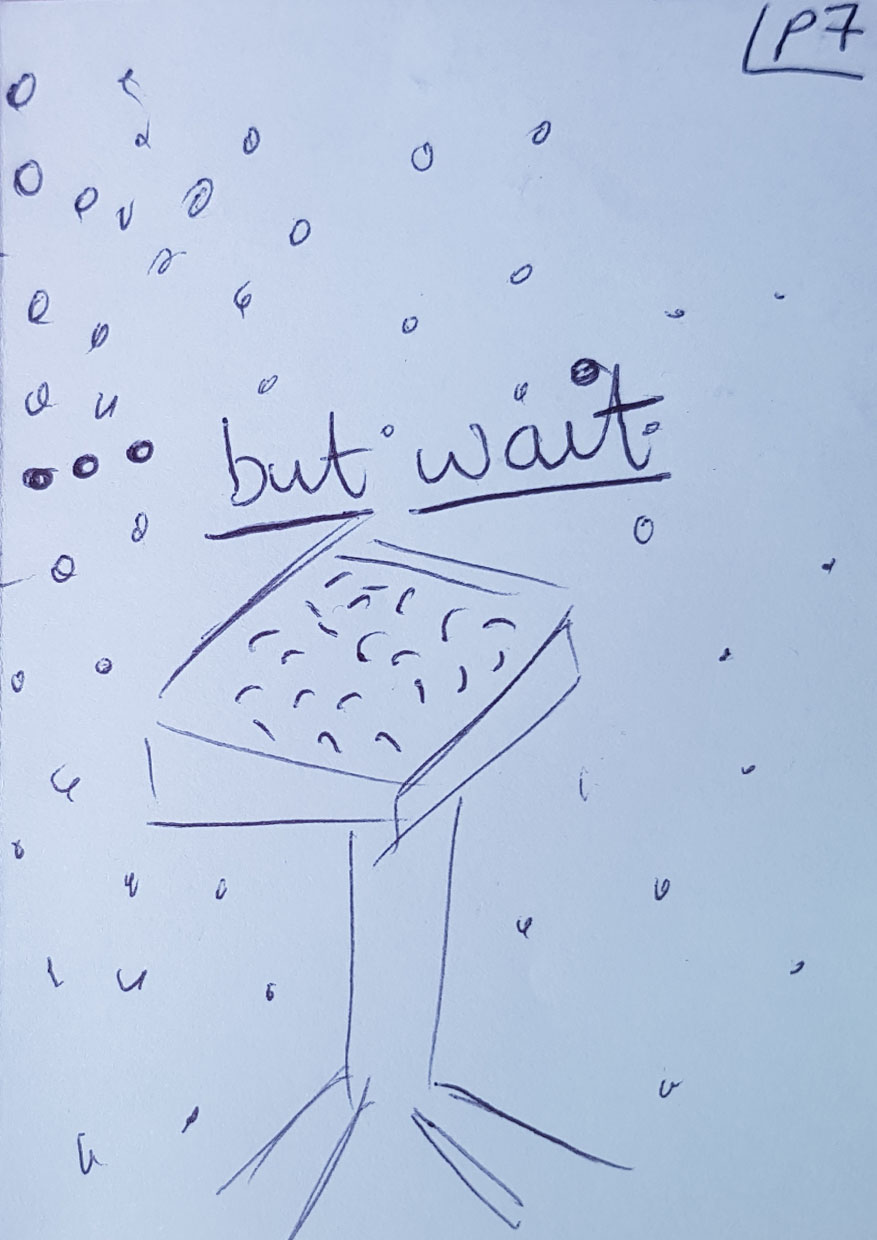 P7
but wait